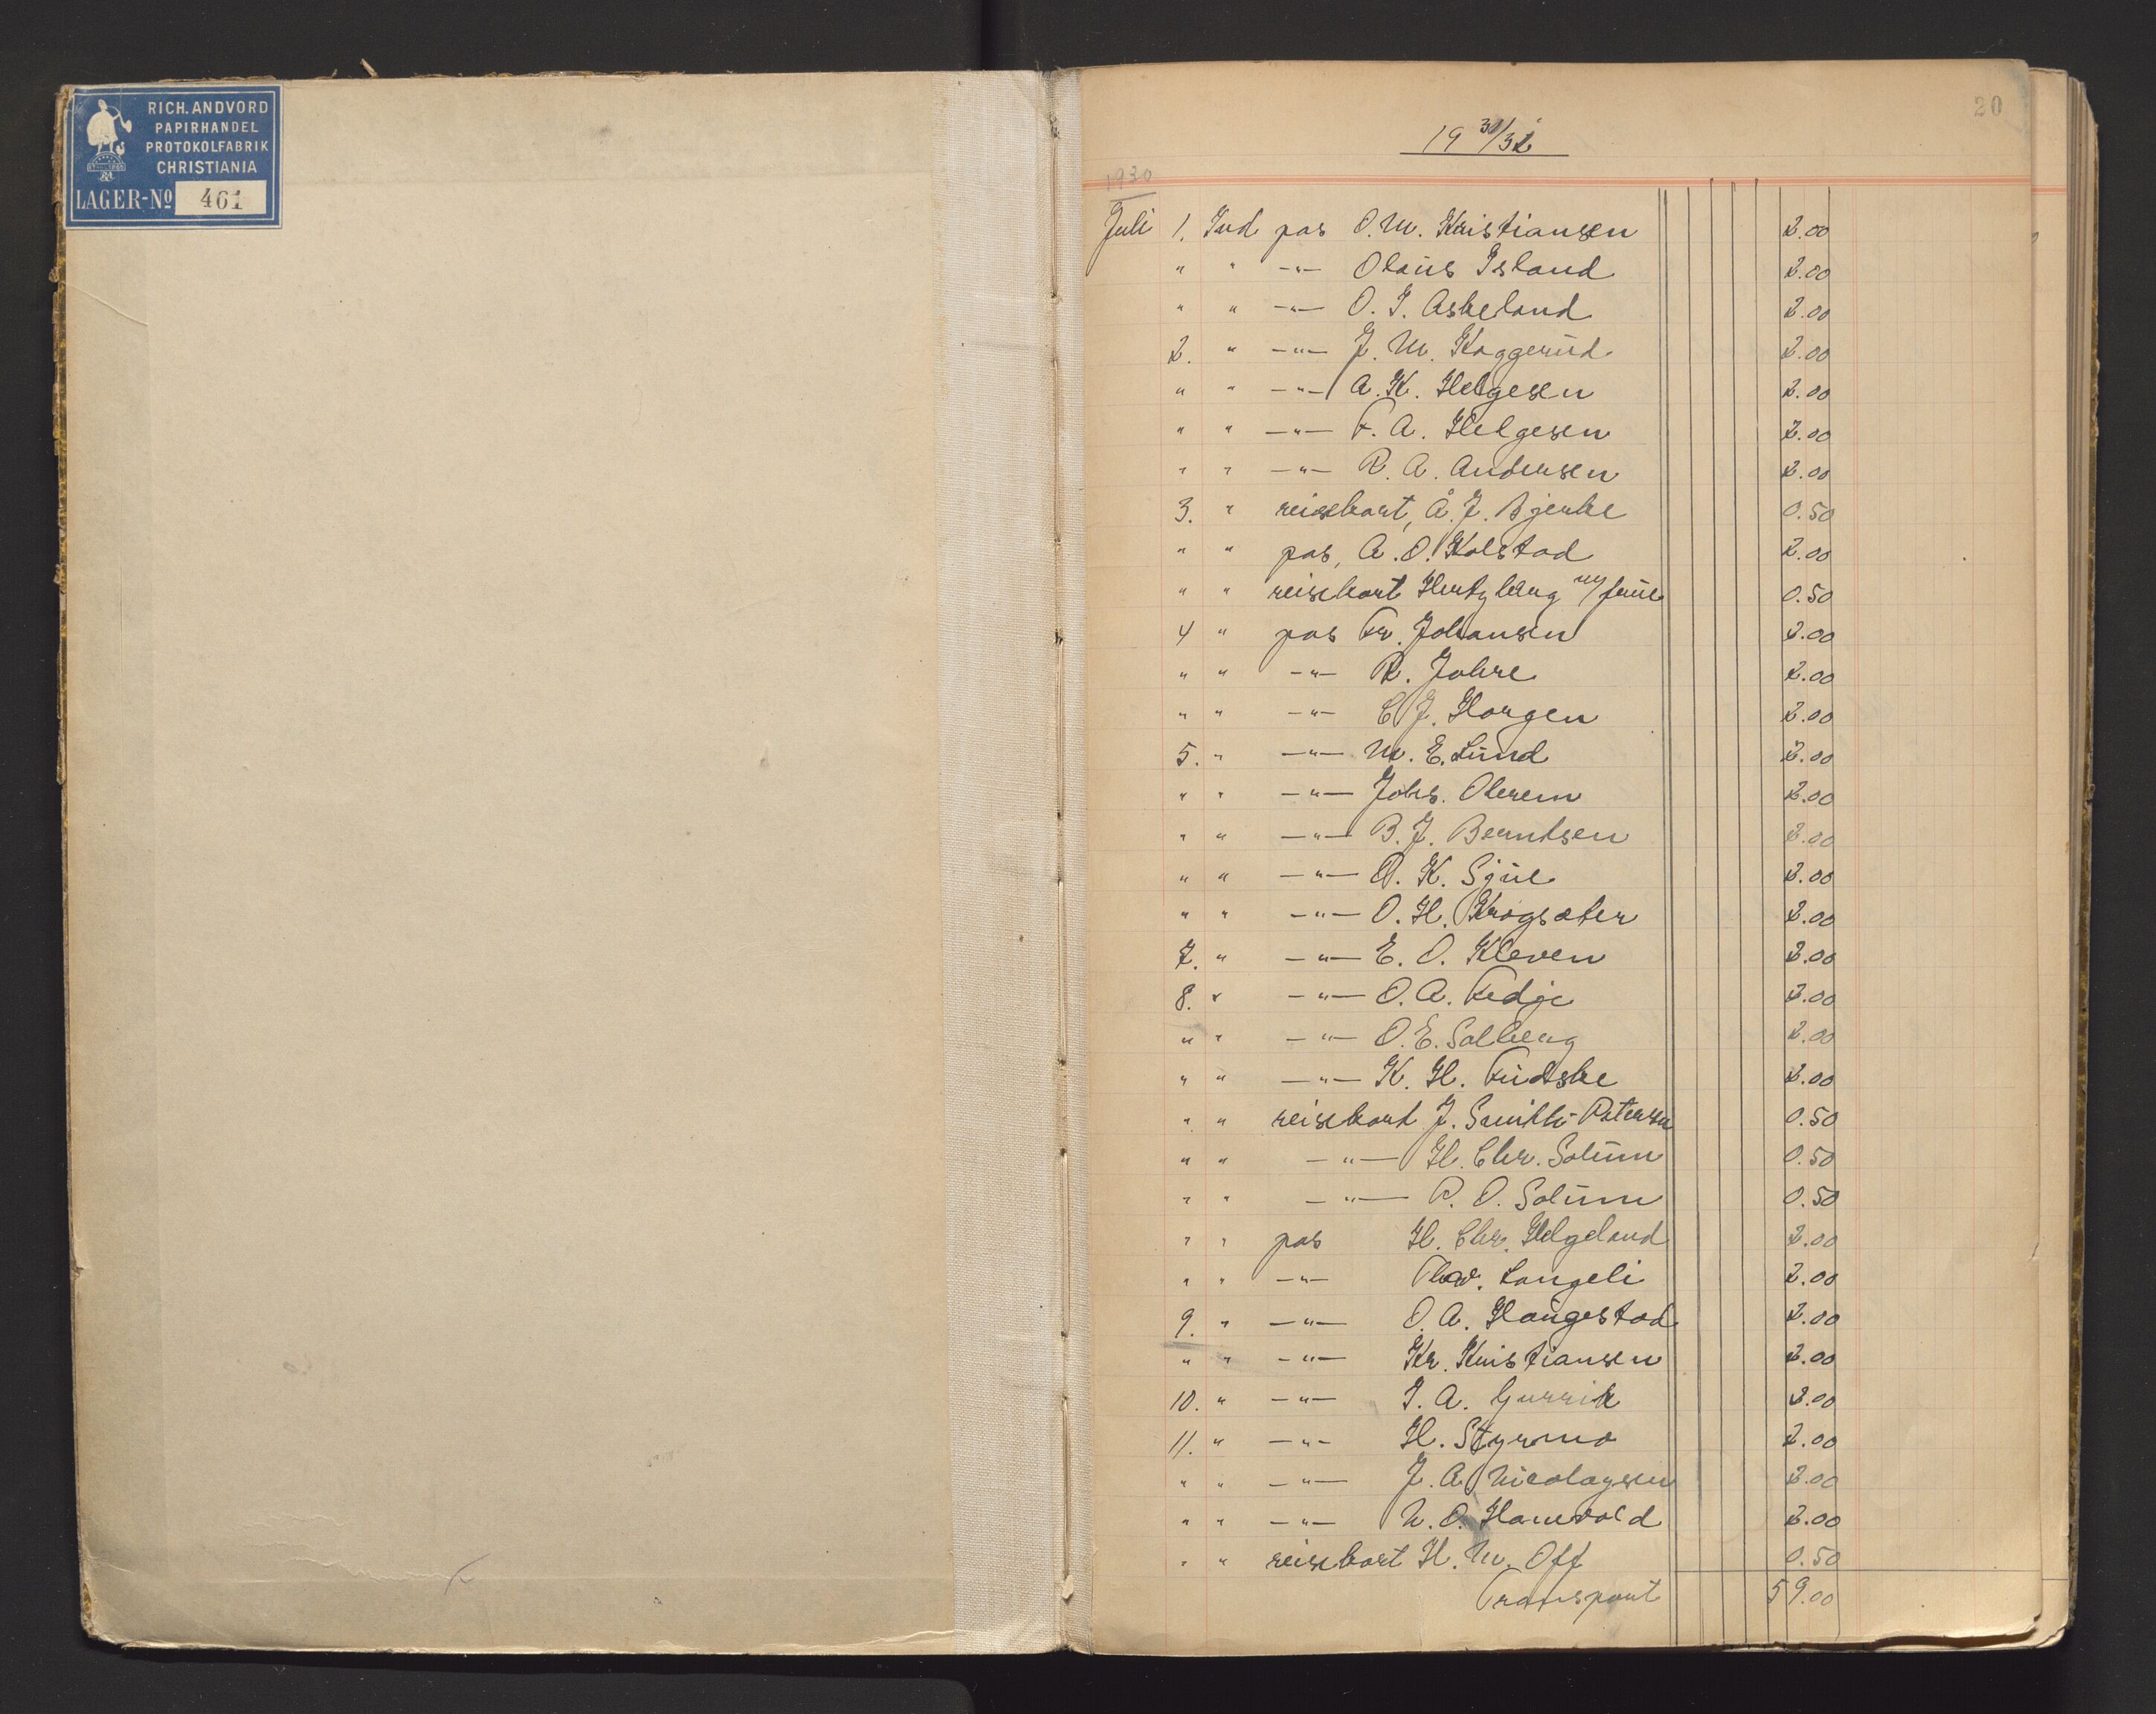 RICH. ANDVORD
PAPIRHANDEL
PROTOKOLFABRIK
CHRISTIANIA
LAGER-Nº 461
20
19 30/31
1930
Juli 1. Ind pas O. M. Kristiansen 2.00
" " -"- Olaus Island 2.00
" " -"- O. I. Askeland 2.00
2. " -"- J. M. Kaggerud 2.00
" " -"- A. K. Helgesen 2.00
" " -"- F. A. Helgesen 2.00
" " -"- R. A. Andersen 2.00
3. " reisekort, Å. J. Bjerke 0.50
" " pas, A. O. Kolstad 2.00
" " reisekort Hertzberg m/ frue 0.50
4 " pas Fr. Johansen 2.00
" " -"- R. Johre 2.00
" " -"- C. J. Horgen 2.00
5. " -"- M. E. Lund 2.00
" " -"- Johs. Oterem 2.00
" " -"- B. J. Berntsen 2.00
" " -"- A. K. Sjue 2.00
" " -"- O. H. Krogsæter 2.00
7. " -"- E. O. Kleven 2.00
8. " -"- O. A. Fedje 2.00
" " -"- O. E. Solberg 2.00
" " -"- K. H. Fudske 2.00
" " reisekort J. Smith-Petersen 0.50
" " -"- H. Chr. Solum 0.50
" " -"- R. O. Solum 0.50
" " pas H. Chr. Helgeland 2.00
" " -"- Olav. Langeli 2.00
9. " -"- O. A. Haugestad 2.00
" " -"- Kr. Kristiansen 2.00
10. " -"- I. A. Gurrik 2.00
11. " -"- H. Styrmo 2.00
" " -"- J. A. Nicolaysen 2.00
" " -"- N. O. Hanevold 2.00
" " reisekort H. M. Off 0.50
Transport 59.00